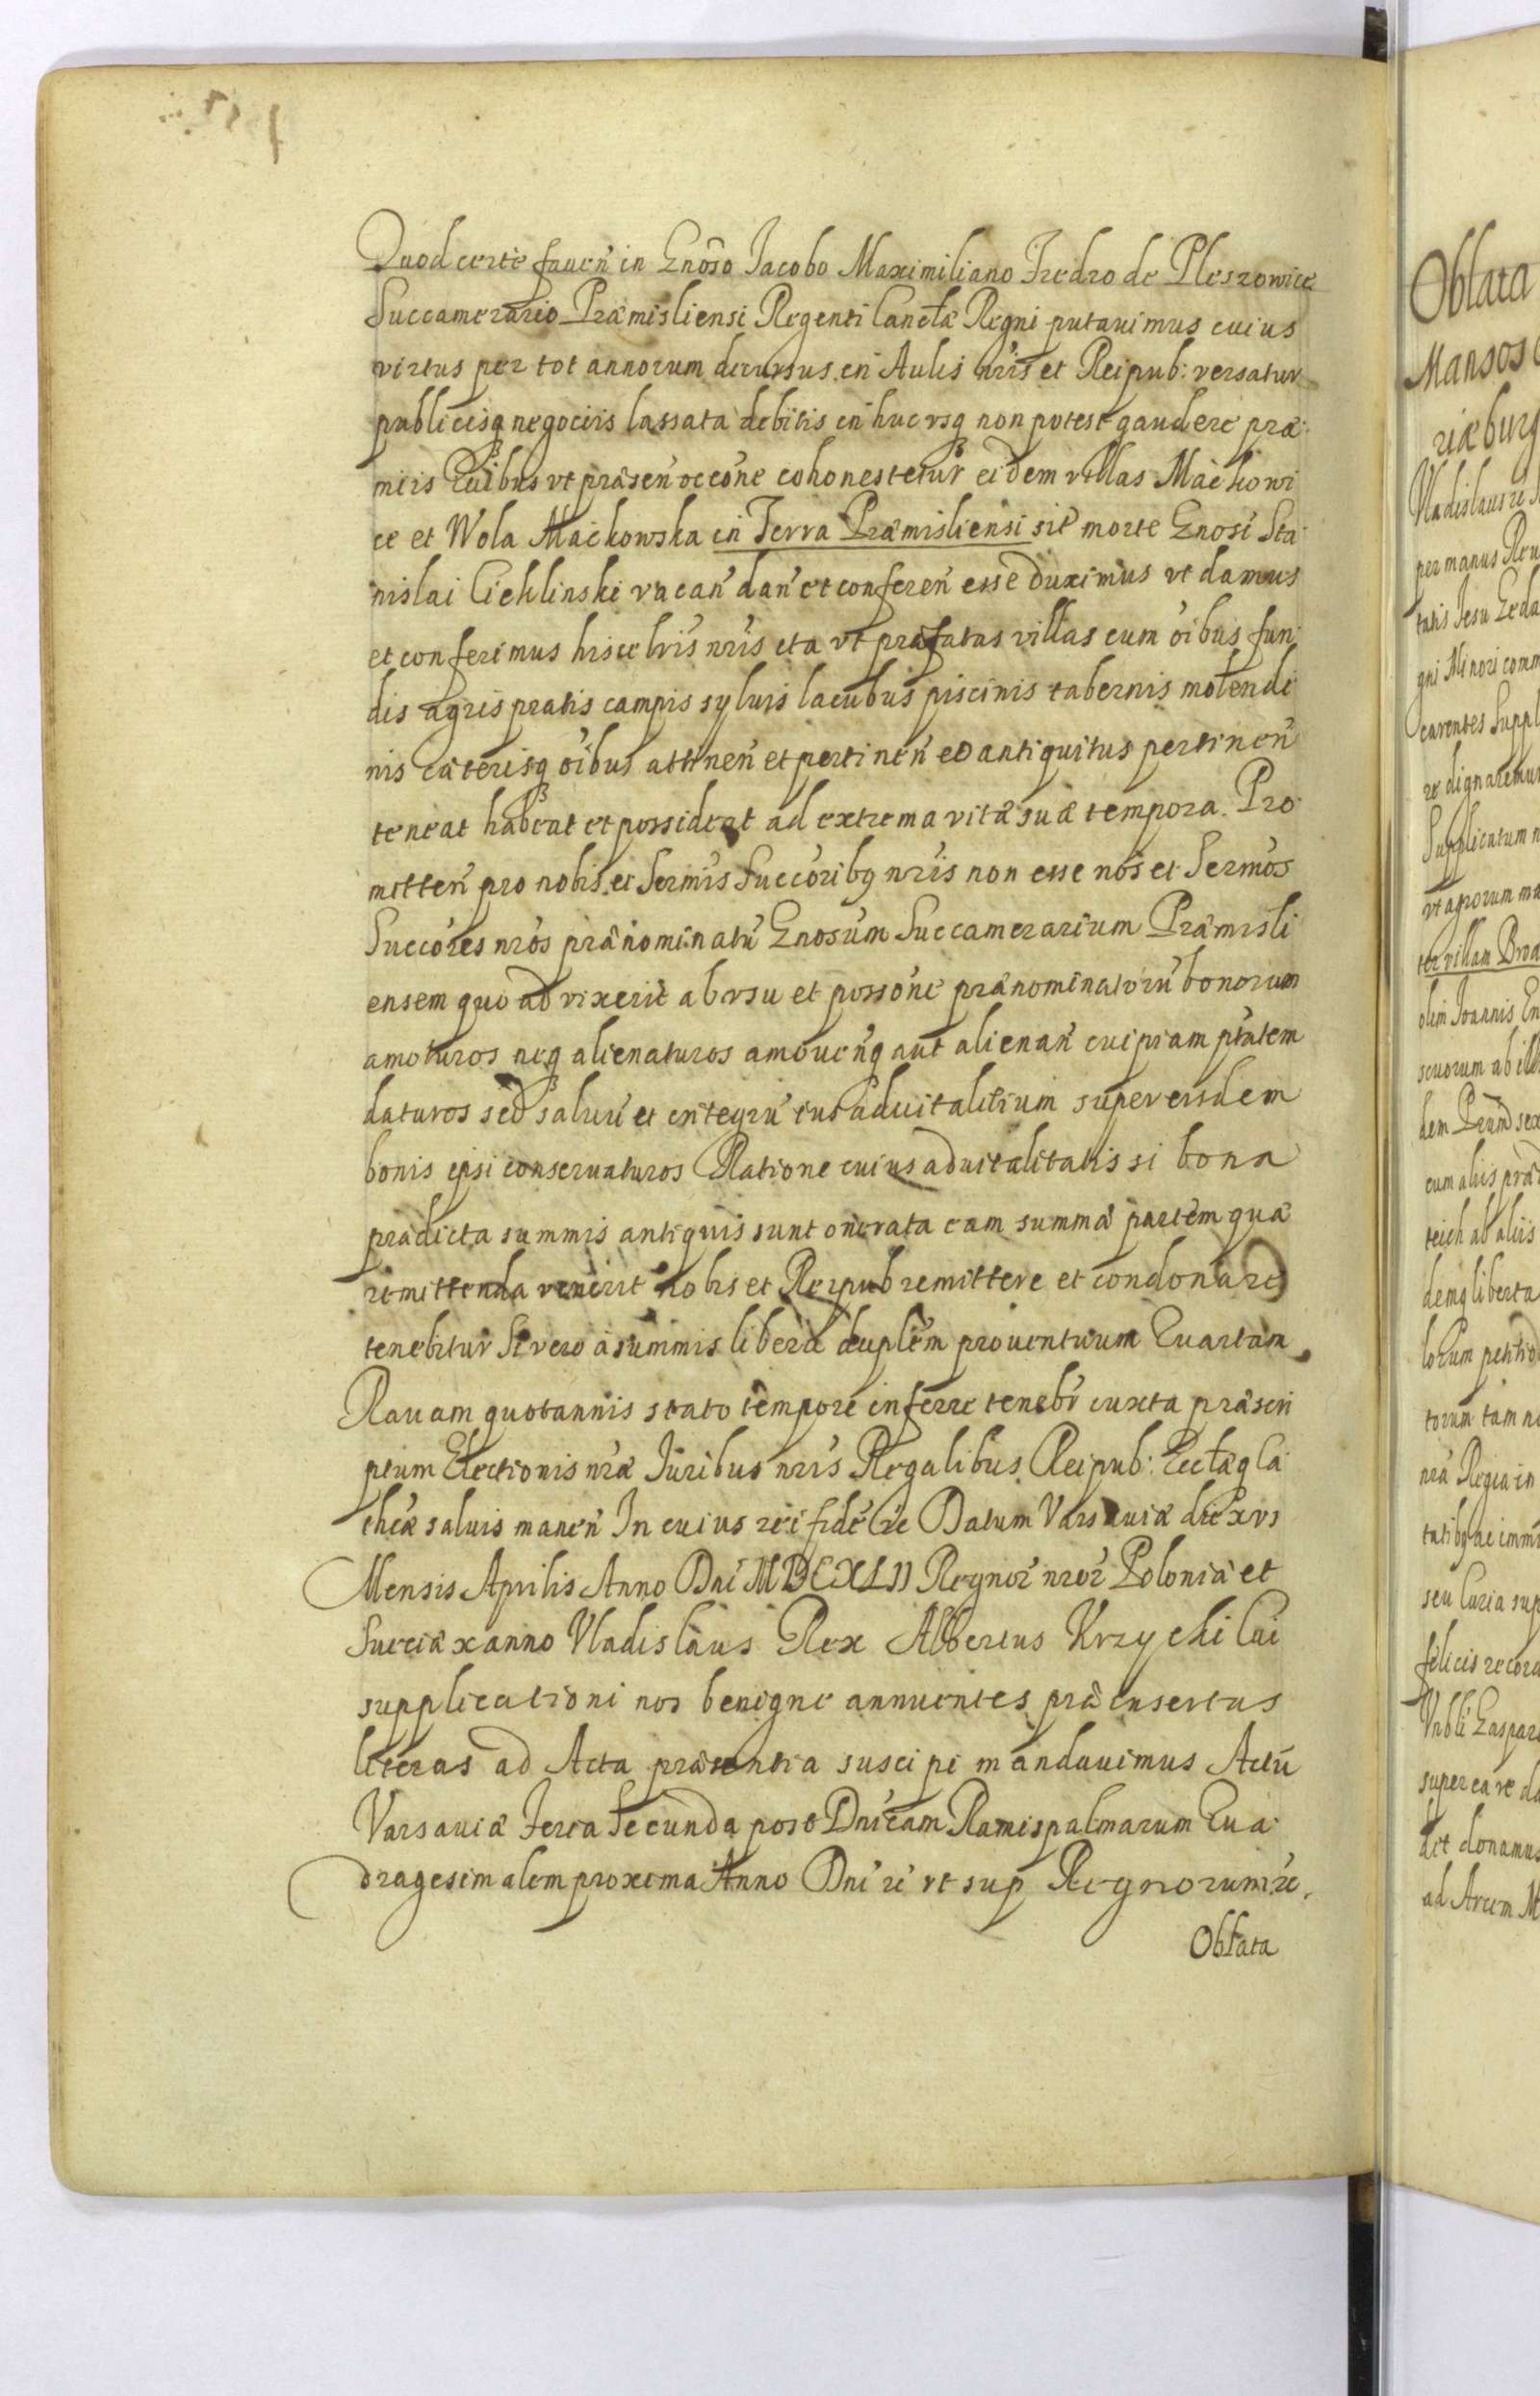 Quod certè faueñ in Gnoso Iacobo Maximiliano Fredro de Pleszowice
Succamerario Præmisliensi Regenti Canctæ Regni putauimus cuius
virtus per tot annorum decursus in Aulis nris et Reipub: versatur
publicisq negociis lassata debitis in huc vsq non potest gaudere præ
miis Quibus vt præsen occone cohonestetur eidem villas Maćkowi
ce et Wola Maćkowska in Terra Præmisliensi sit morte Gnosi Sta
nislai Cieklinski vacan dan et conferen esse duximus vt damus
et conferimus hisce lris nris ita vt præfatas villas cum oibus fun
dis agris pratis campis syluis lacubus piscinis tabernis molendi
nis cæterisq oibus attinen et pertinen eo antiquitus pertinen
teneat habeat et possideat ad extrema vitæ suæ tempora. Pro
mitten pro nobis et Sermis Succoribq nris non esse nos et Sermos
Succores nros prænominatu Gnosum Succamerarium Præmisli
ensem quo ad vixerit ab vsu et possone prænominatoru bonorum
amoturos neq alienaturos amouenq aut alienan cuipiam ptatem
daturos sed saluu et integru ius aduitalitium super eisdem
bonis ipsi conseruaturos Ratione cuius aduitalitatis si bona
prædicta summis antiquis sunt onerata eam summæ partem quæ
remittenda venerit nobis et Reipub remittere et condonare
tenebitur Si vero a summis libera duplem prouentuum Quartam
Rauam quotannis stato tempore inferre tenebr iuxta præscri
ptum Electionis nræ Iuribus nris Regalibus Reipub: Ecctæq Ca
thcæ saluis manen In cuius rei fide &c Datum Varsauiæ die xvi
Mensis Aprilis Anno Dni MDCXLII Regnor nror Poloniæ et
Sueciæ x anno Vladislaus Rex Albertus Krzycki Cui
supplicationi nos benigne annuentes præinsertas
literas ad Acta præsentia suscipi mandauimus Actu
Varsauiæ Feria Secunda post Dnicam Ramispalmarum Qua
dragesimalem proxima Anno Dni &c vt sup Regnorum &c.
Oblata
Oblata
Mansos
riæburg
Vladislaus &c
per manus
tatis Iesu
gni Minori comm
carentes Suppl
re dignaremur
Supplicatum
vt agrorum
ter villam
olim Ioannis
scuorum ab
dem
cum aliis præ
teich ab aliis
demq liberta
lorum petitio
torum tam
nra Regia in
tatibq ac imm
seu Curia sup
felicis recor
Vnbli Gaspar
super ea re
dit donamus
ad Arcem